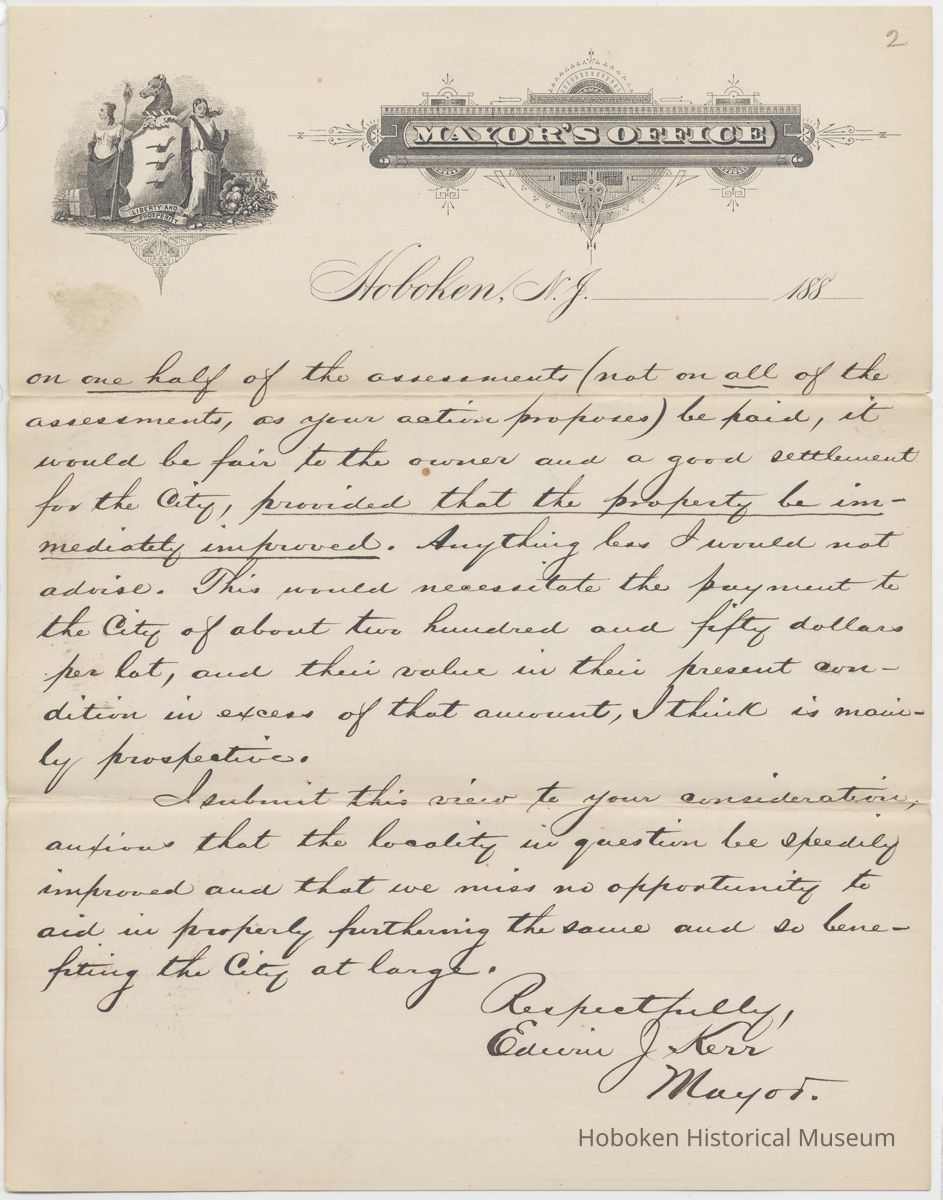 2
LIBERTY AND
PROSPERITY
MAYOR'S OFFICE
Hoboken, N.J. 188
on one half of the assessments (not on all of the
assessments, as your action proposes) be paid, it
would be fair to the owner and a good settlement
for the City, provided that the property be im-
mediately improved. Anything less I would not
advise. This would necessitate the payment to
the City of about two hundred and fifty dollars
per lot, and their value in their present con-
dition in excess of that amount, I think is main-
ly prospective.
I submit this view to your consideration,
anxious that the locality in question be speedily
improved and that we miss no opportunity to
aid in properly furthering the same and so bene-
fiting the City at large.
Respectfully,
Edwin J Kerr
Mayor.
Hoboken Historical Museum